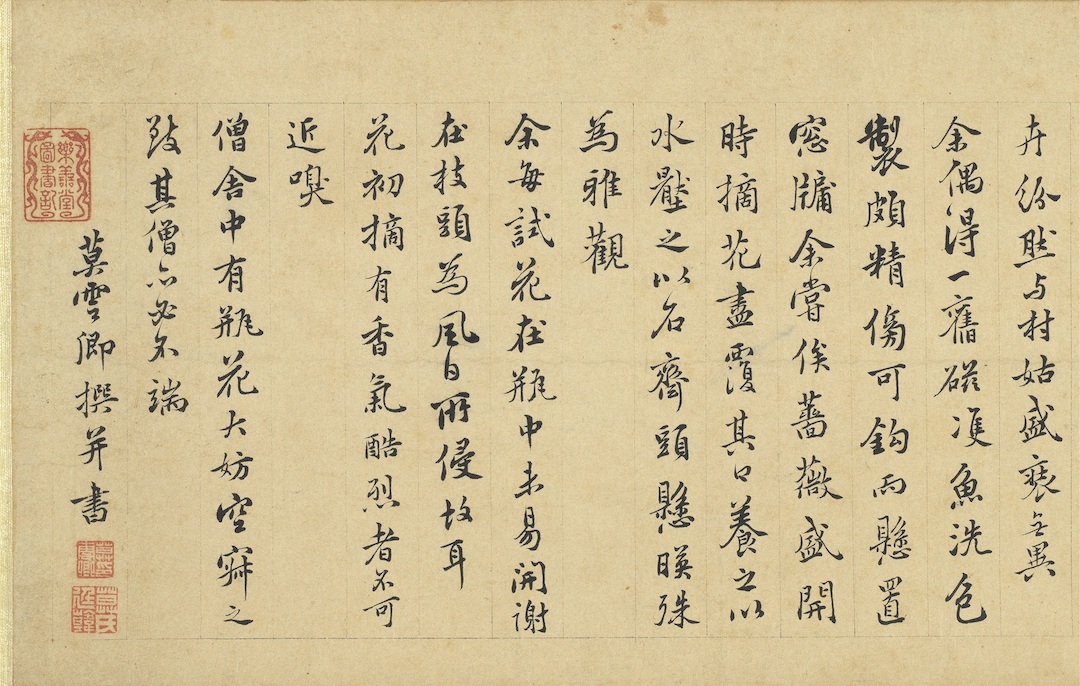 卉紛然与村姑盛裘無異
余偶得一舊磁準魚洗色
製頗精傍可鈎而懸置
窓牖余嘗俟薔薇盛開
時摘花盡覆其口養之以
水壂之以名齋頭懸暎殊
為雅觀
余每試花在瓶中未易開謝
在枝頭為風日所侵故耳
花初摘有香氣酷烈者不可
近嗅
僧舍中有瓶花大妨空寂之
致其僧亦必不端
莫雲卿撰并書
樂善堂圖書記
莫氏廷韓